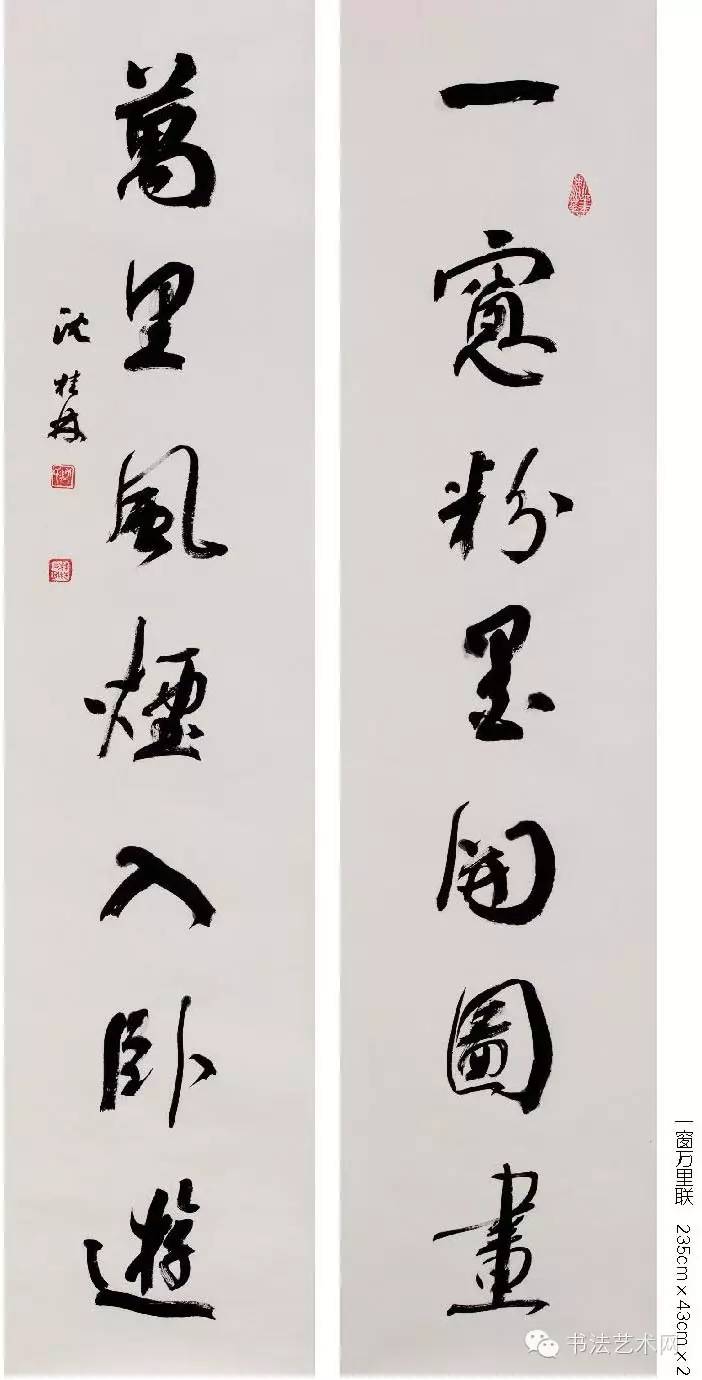 一窻粉墨開圖畫
萬里風煙入卧遊
沈桂林
一窗万里联 235cm×43cm×2
书法艺术网